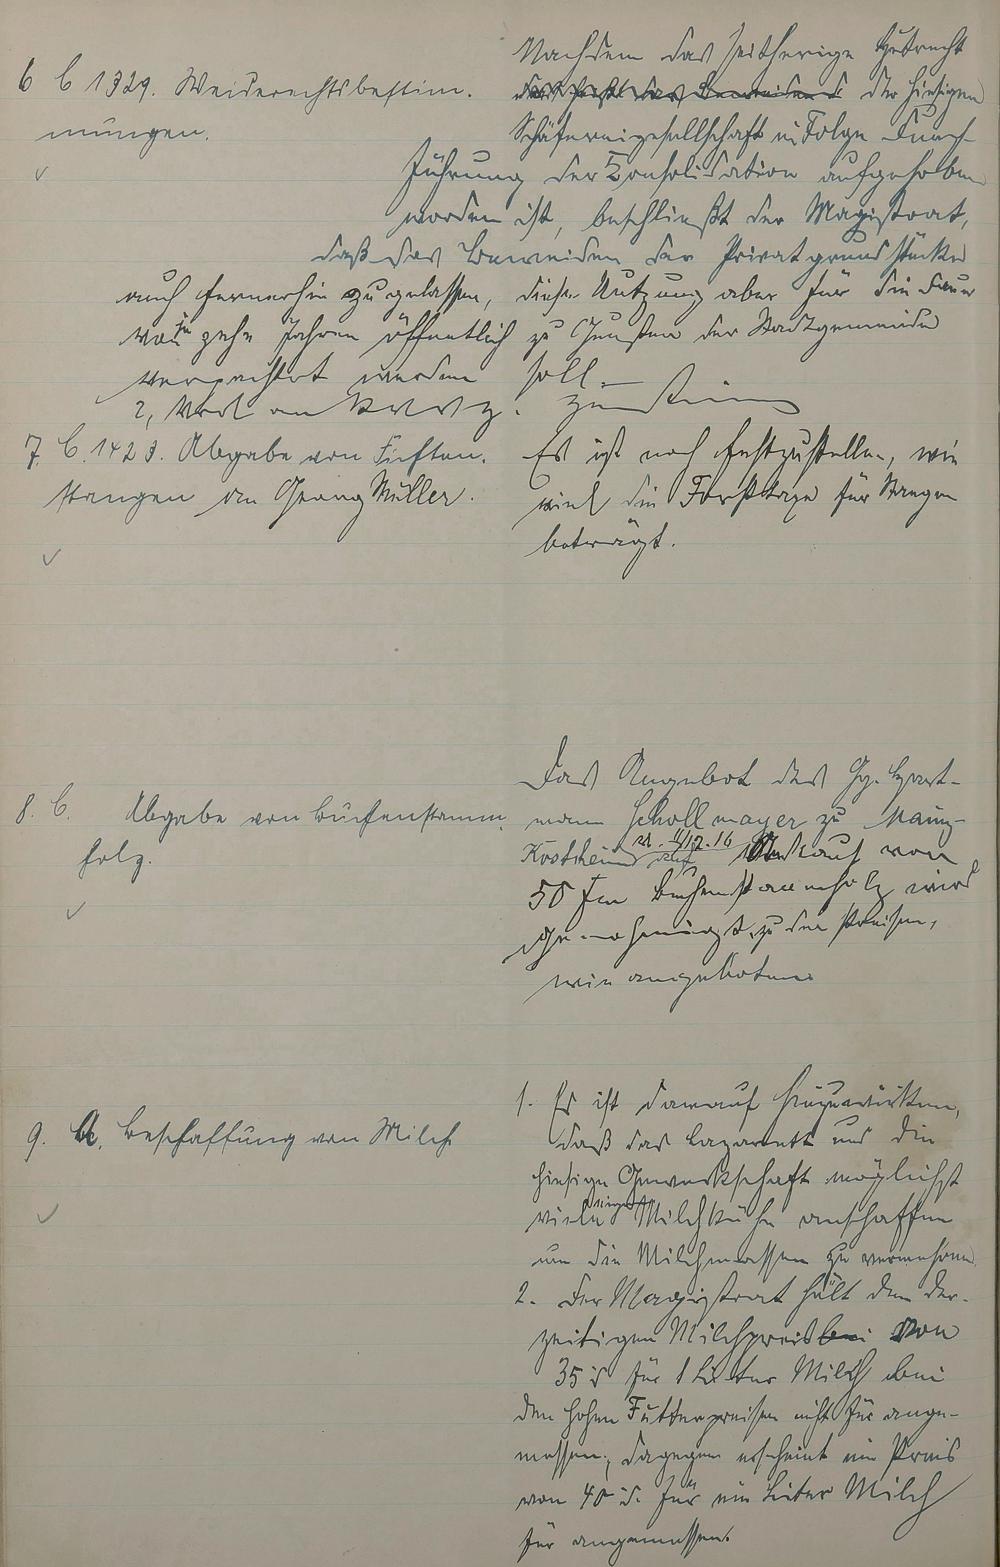 6 C 1329. Weiderechtsbestim-
mungen.
Nachdem das seitherige Hutrecht
das heißt das Beweiden d der hiesigen
Schäfereigesellschaft in Folge Durch-
führung der Consolidation aufgehoben
worden ist, beschließt der Magistrat,
daß das Beweiden der Privatgrundstücke
auch fernerhin zu gelassen, diese Nutzung aber für die Dauer
von zehn Jahren öffentlich zu Gunsten der Stadtgemeinde
verpachtet werden soll.
2, Vorl. an
7. C. 1423. Abgabe von Fichten-
stangen an Georg Müller.
Es ist noch festzustellen, wie
viel die Forsttaxe für Stangen
beträgt.
8. C. Abgabe von Buchenstamm-
holz.
Das Angebot des Gg. Hart-
mann Schollmayer zu Mainz-
Kostheim v. 4/12.16 auf Verkauf von
50 fm Buchenstammholz wird
genehmigt, zu den Preisen,
wie angeboten.
9. A. Beschaffung von Milch
1. Es ist darauf hinzuwirken,
daß das Lazarett und die
hiesige Gewerkschaft möglichst
viele Milchkühe anschaffen
um die Milchmassen zu vermehren.
2. Der Magistrat hält den der-
zeitigen Milchpreis bei von
35 d für 1 Liter Milch bei
den hohen Futterpreisen nicht für ange-
messen, dagegen erscheint ein Preis
von 40 d. für ein Liter Milch
für angemessen.